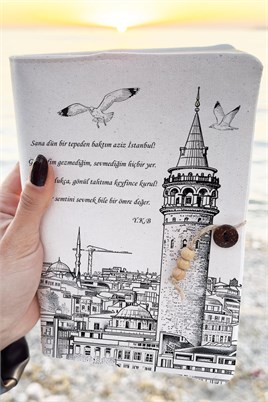 Sana dün bir tepeden baktım aziz İstanbul!
gezmediğim, sevmediğim hiçbir yer.
gönül tahtıma keyfince kurul!
semtini sevmek bile bir ömre değer.
Y.K.B